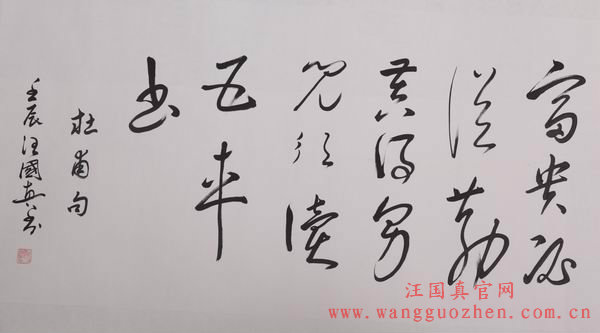 富貴必
從勤
苦得男
兒須讀
五車
书
杜甫句
壬辰汪國真书
汪国真官网
www.wangguozhen.com.cn